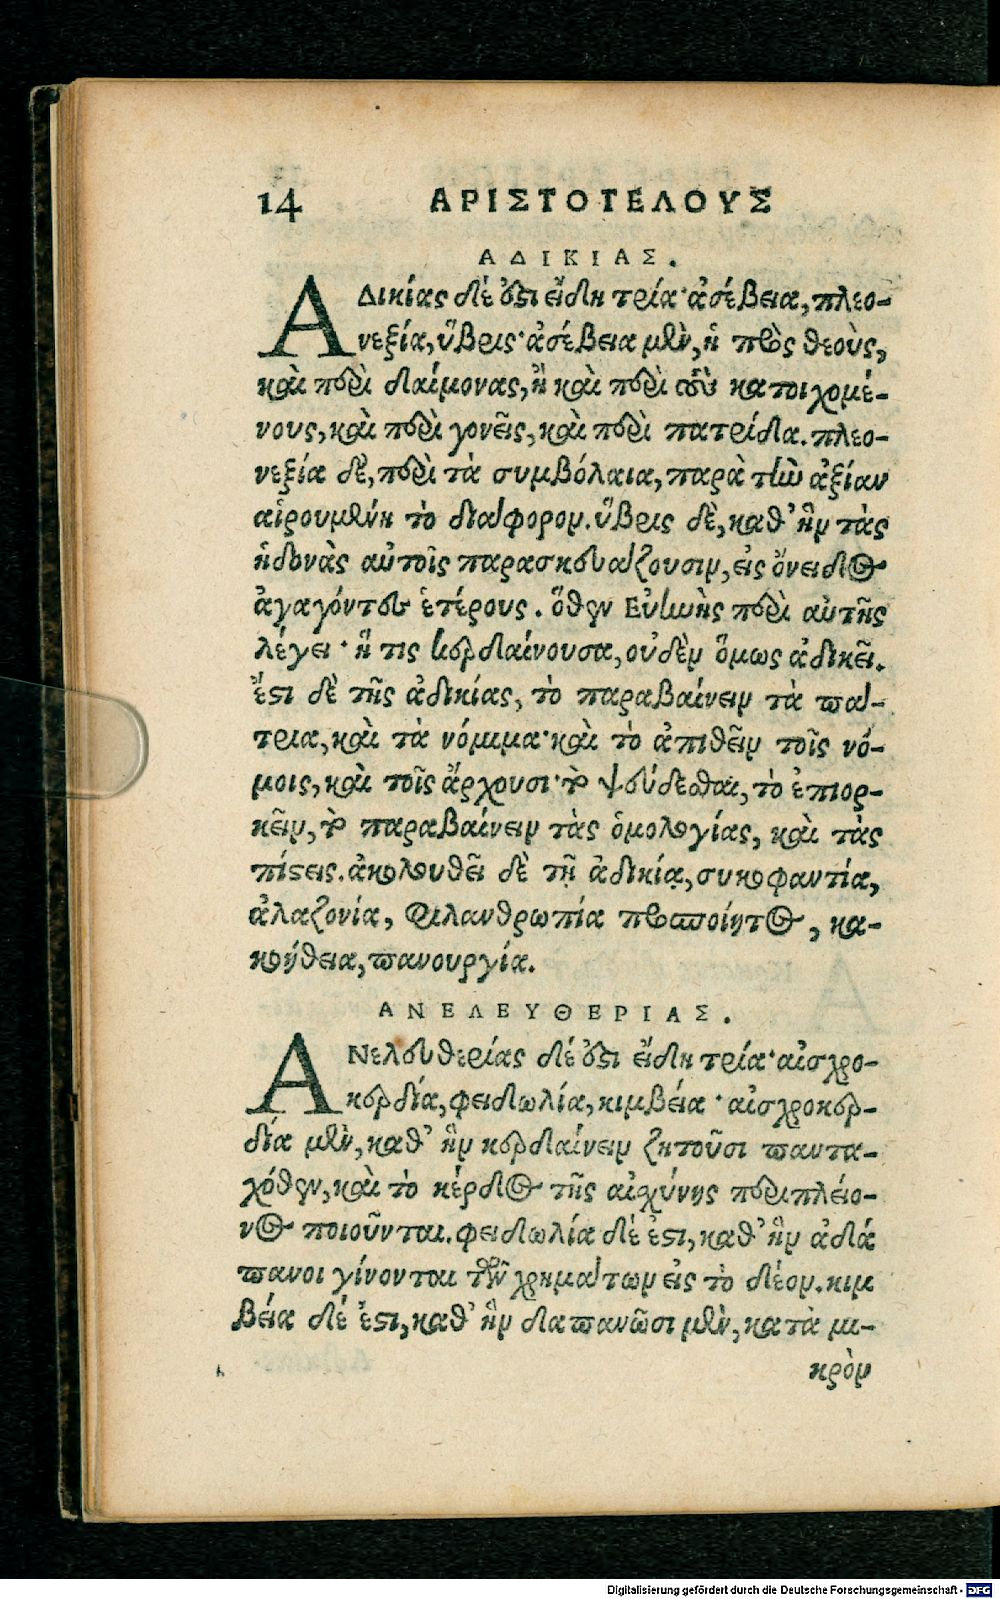 14 ΑΡΙΣΤΟΤΕΛΟΥΣ
ΑΔΙΚΙΑΣ.
ΑΔικίας δέ ὅτι εἴδη τρία· ἀσέβεια, πλεο-
νεξία, ὕβρις· ἀσέβεια μὲν, ἡ πρὸς θεοὺς,
καὶ περὶ δαίμονας, ἢ καὶ περὶ τοὺς κατοιχομέ-
νους, καὶ περὶ γονεῖς, καὶ περὶ πατρίδα. πλεο-
νεξία δὲ, περὶ τὰ συμβόλαια, παρὰ τὴν ἀξίαν
αἱρουμένη τὸ διάφορον. ὕβρις δὲ, καθ' ἣν τὰς
ἡδονὰς αὑτοῖς παρασκευάζουσιν, εἰς ὄνειδος
ἀγαγόντες ἑτέρους. ὅθεν Εὐίωὴς περὶ αὐτῆς
λέγει· ἥ τις κερδαίνουσα, οὐδὲν ὅμως ἀδικεῖ.
ἔστι δὲ τῆς ἀδικίας, τὸ παραβαίνειν τὰ πά-
τρια, καὶ τὰ νόμιμα· καὶ τὸ ἀπιθεῖν τοῖς νό-
μοις, καὶ τοῖς ἄρχουσι· τὸ ψεύδεσθαι, τὸ ἐπιορ-
κεῖν, τὸ παραβαίνειν τὰς ὁμολογίας, καὶ τὰς
πίστεις. ἀκολουθεῖ δὲ τῇ ἀδικίᾳ, συκοφαντία,
ἀλαζονία, φιλανθρωπία προσποίητος, κα-
κοήθεια, πανουργία.
ΑΝΕΛΕΥΘΕΡΙΑΣ.
ΑΝελευθερίας δέ ὅτι εἴδη τρία· αἰσχρο-
κερδία, φειδωλία, κιμβεία· αἰσχροκερ-
δία μὲν, καθ' ἣν κερδαίνειν ζητοῦσι παντα-
χόθεν, καὶ τὸ κέρδος τῆς αἰσχύνης περὶ πλέιο-
νος ποιοῦνται. φειδωλία δέ ἐστι, καθ' ἣν ἀδά
πανοι γίνονται τῶν χρημάτων εἰς τὸ δέον. κιμ
βεία δέ ἐστι, καθ' ἣν δαπανῶσι μὲν, κατὰ μι-
κρὸν
Digitalisierung gefördert durch die Deutsche Forschungsgemeinschaft - DFG